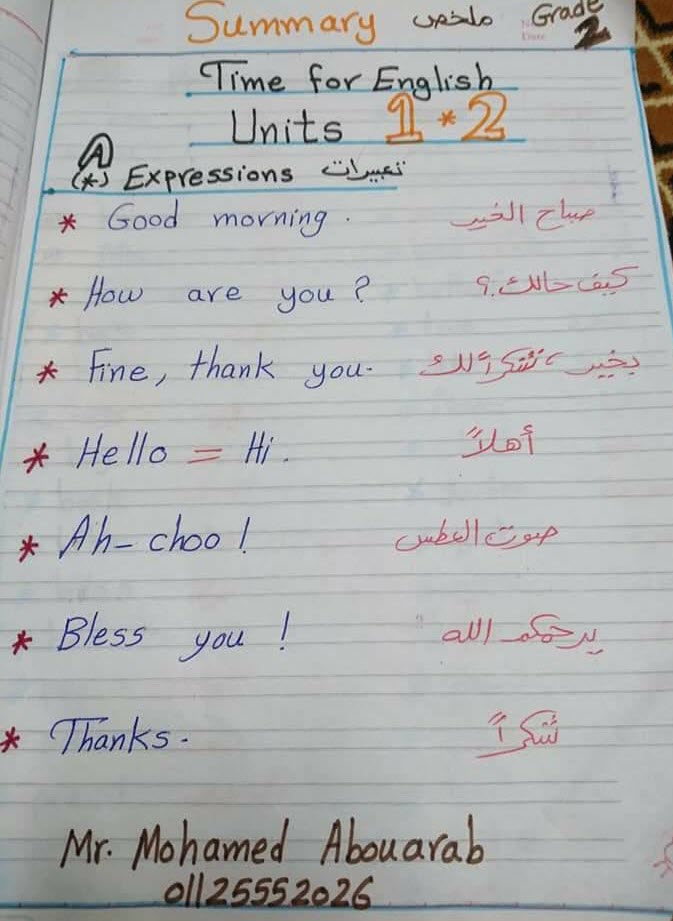 Summary ملخص Grade 2
Time for English
Units 1 * 2
A
(*) Expressions تعبيرات
* Good morning. صباح الخير
* How are you? كيف حالك؟
* Fine, thank you. بخير، شكراً لك
* Hello = Hi. أهلاً
* Ah-choo! صوت العطس
* Bless you! يرحمكم الله
* Thanks. شكراً
Mr. Mohamed Abouarab
01125552026